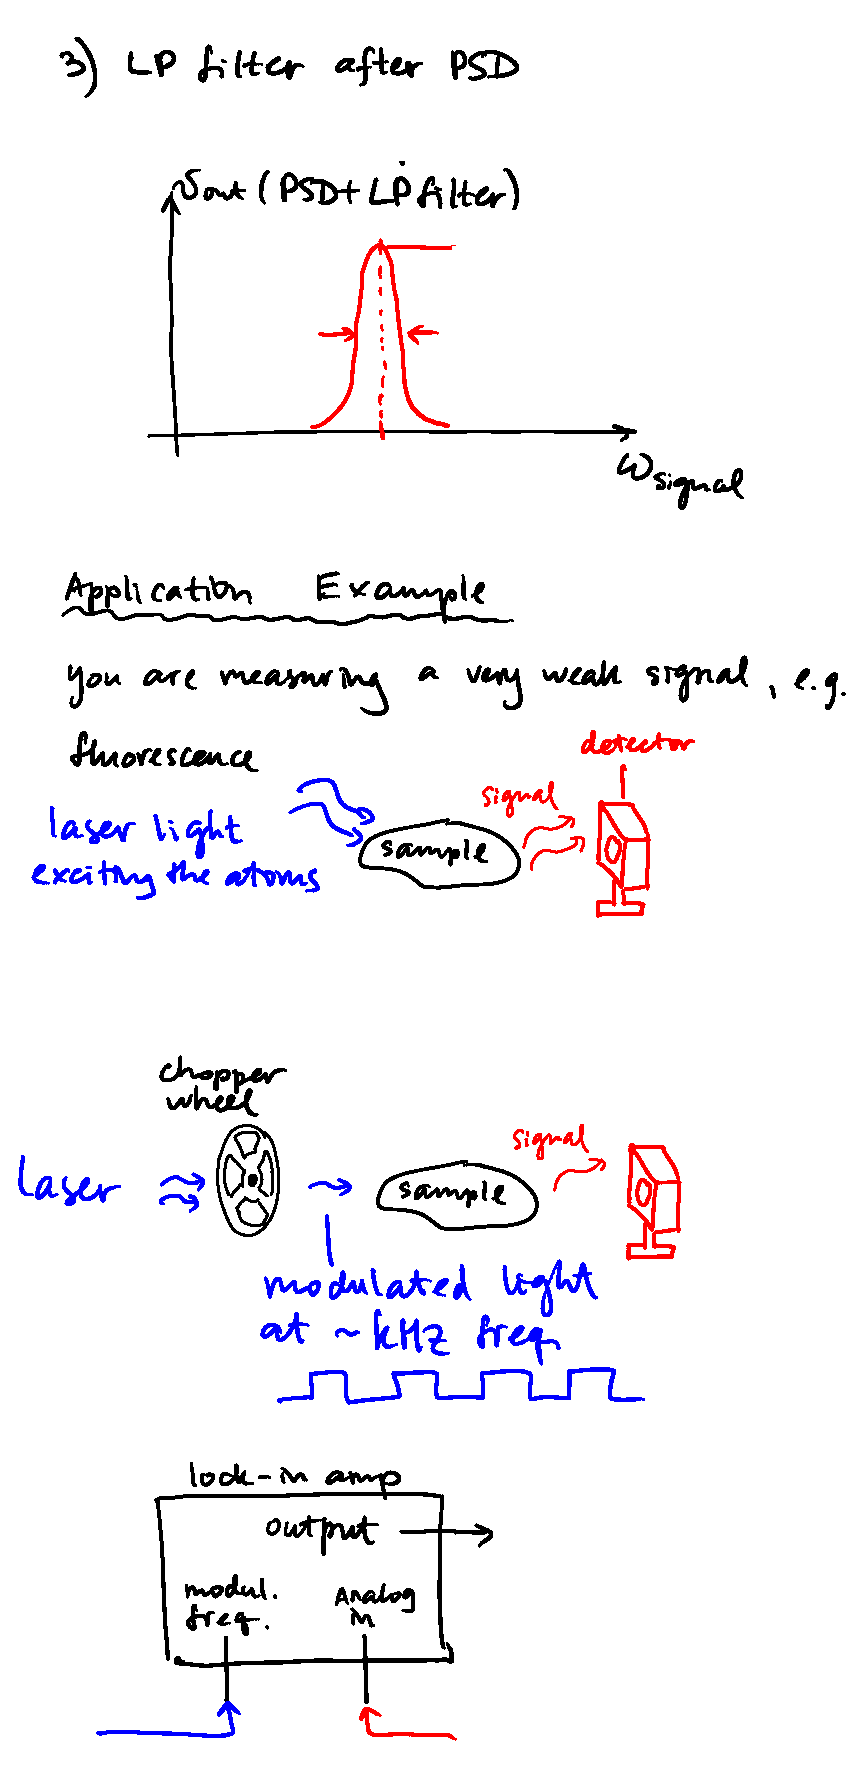 3) LP filter after PSD
υout (PSD+LP filter)
ωsignal
Application Example
you are measuring a very weak signal, e.g.
fluorescence
detector
signal
laser light
exciting the atoms
sample
chopper
wheel
signal
Laser
sample
modulated light
at ~kHz freq.
lock-in amp
output
modul.
freq.
Analog
in